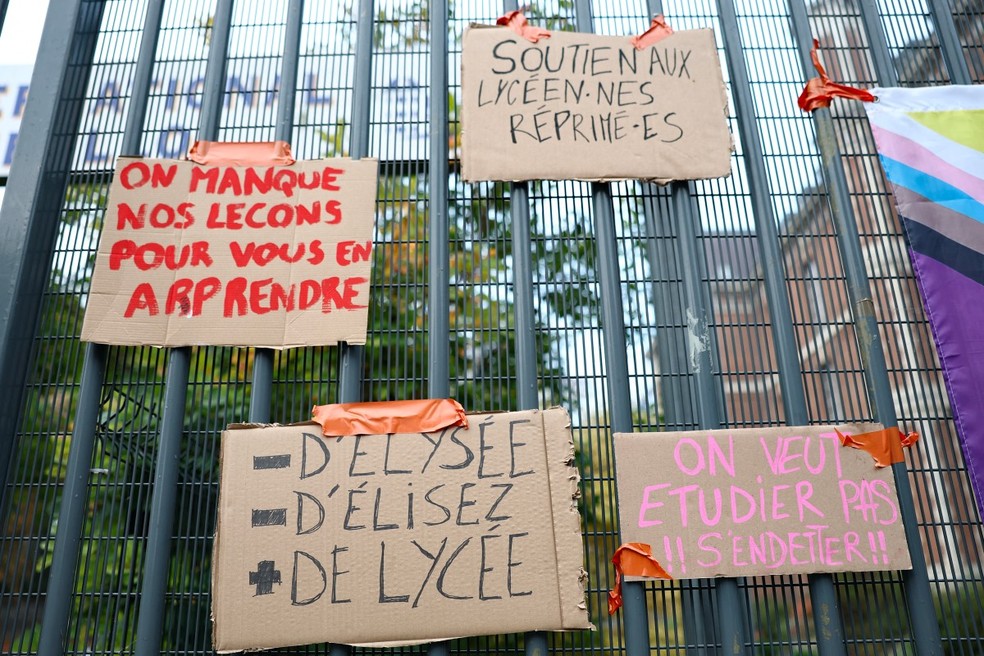 ON MANQUE
NOS LECONS
POUR VOUS EN
APPRENDRE
SOUTIEN AUX
LYCÉEN·NES
RÉPRIMÉ·ES
- D'ELYSÉE
- D'ÉLISEZ
+ DE LYCÉE
ON VEUT
ETUDIER PAS
!! S'ENDETTER!!